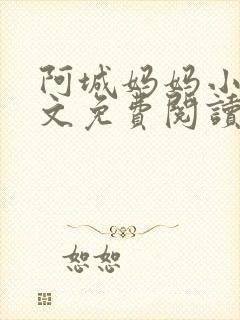 阿城妈妈小
文免費閱讀
恕恕